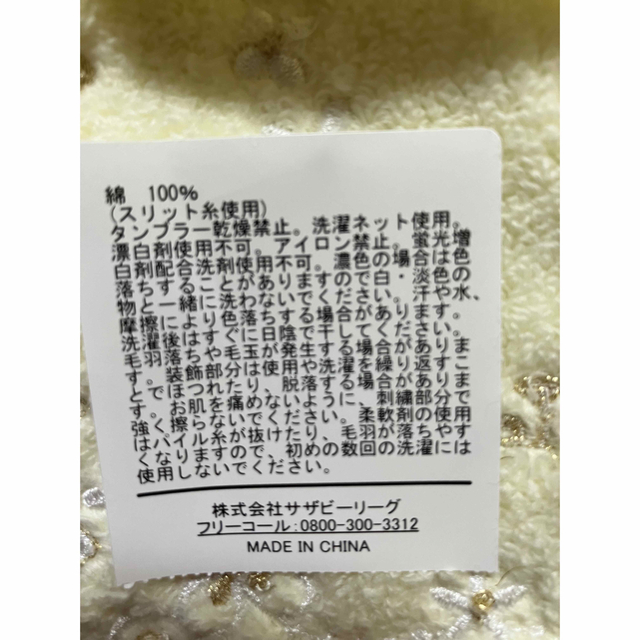 綿　100%
(スリット糸使用)
タンブラー乾燥禁止。洗濯ネット使用。
漂白剤使用不可。アイロン禁止。蛍光増
白剤配合洗剤使用不可。濃色の場合は色
落ちすることがありますので白・淡色の
物と一緒に洗わないでください。汗や水、
摩擦により色落ちする場合があります。
洗濯後はすぐに日陰で干してください。
毛羽落ちや毛玉が発生する場合がありま
す。装飾部分は使用や洗濯を繰り返すこ
とでほつれたり、脱落する場合がありま
す。お肌を痛めないように、刺繍部分で
強く擦らないでください。柔軟剤の使用
はパイル糸が抜けたり、毛羽が落ちやす
くなりますので、初めの数回の洗濯には
使用しないでください。
株式会社サザビーリーグ
フリーコール:0800-300-3312
MADE IN CHINA